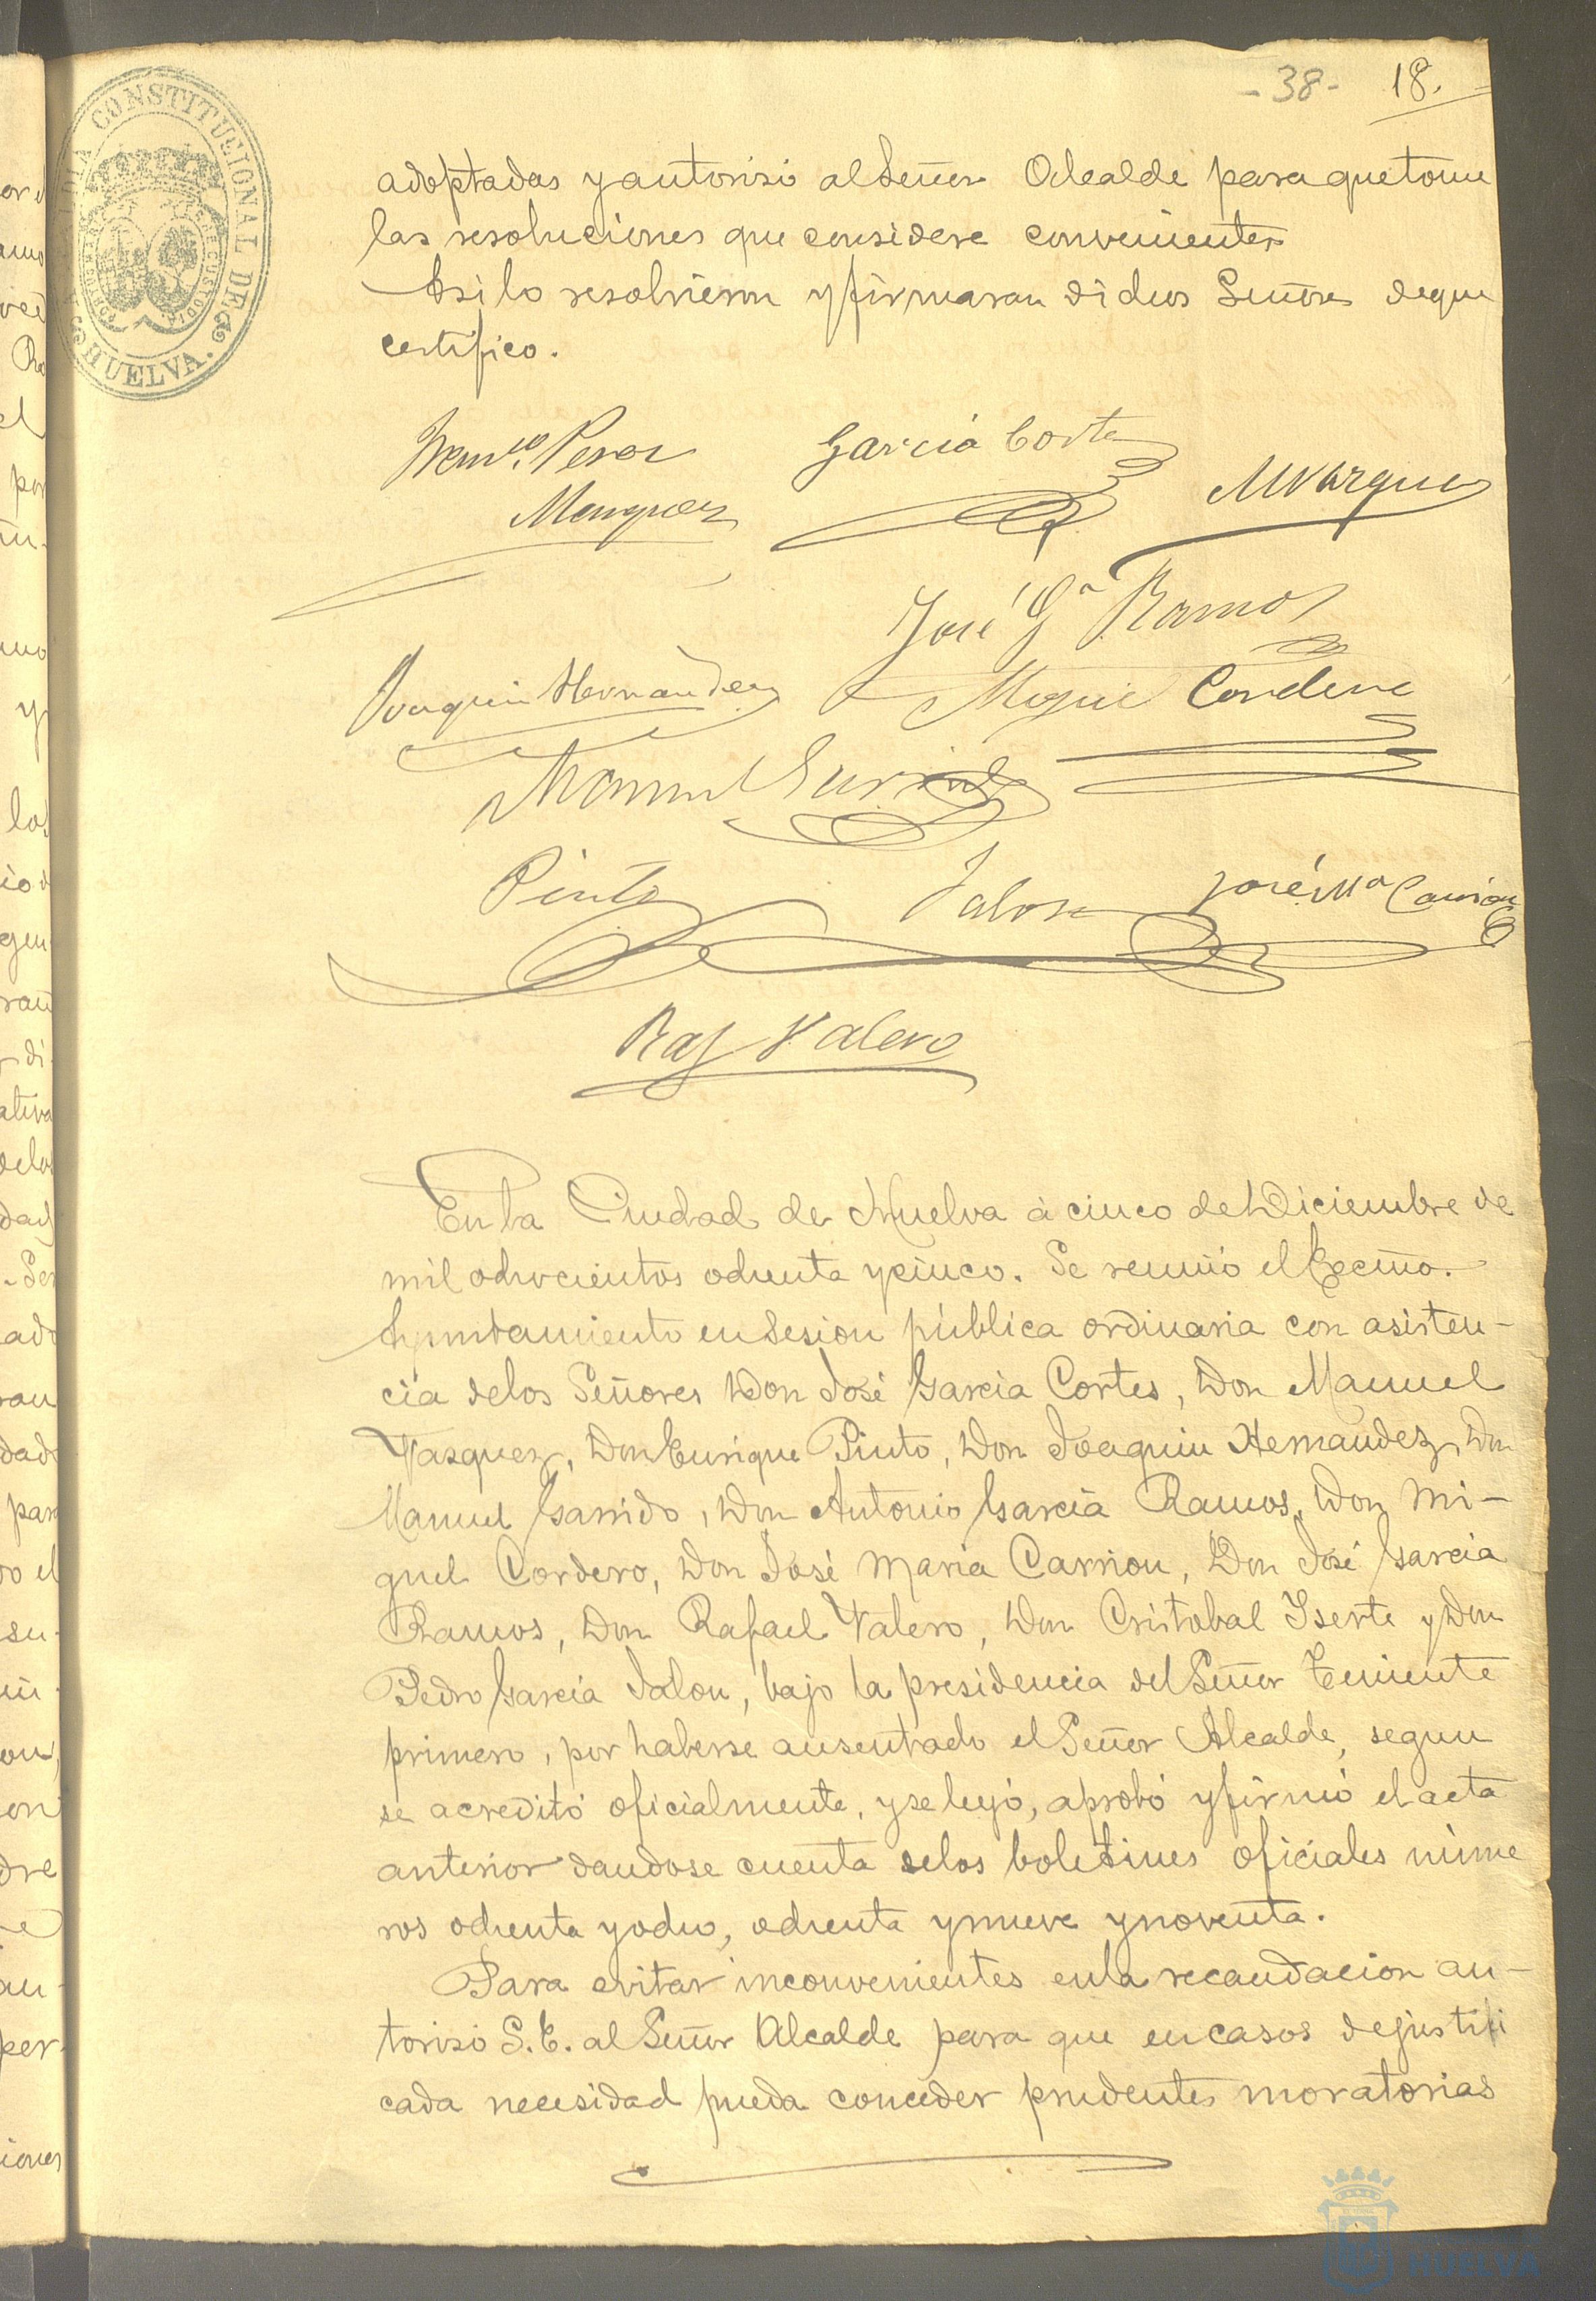 -38- 18.
ALCALDIA CONSTITUCIONAL DE HUELVA.
adoptadas y autorisó al Señor Alcalde para que tome
las resoluciones que considere convenientes
Asi lo resolvieron y firmaran dichos Señores de que
certifico.
Franco. Perez García Cortes
Marquez MVazquez
José Ga Ramos
Joaquin Hernandez Miguel Cordero
Manuel Garrido
Pinto Jalon José Ma Carrion
Raf Valero
En la Ciudad de Huelva á cinco de Diciembre de
mil ochocientos ochenta y cinco. Se reunió el Excmo.
Ayuntamiento en Sesion pública ordinaria con asisten-
cia de los Señores Don José Garcia Cortes, Don Manuel
Vasquez, Don Enrique Pinto, Don Joaquin Hernandez, Don
Manuel Garrido, Don Antonio Garcia Ramos, Don Mi-
guel Cordero, Don José Maria Carrion, Don José Garcia
Ramos, Don Rafael Valero, Don Cristobal Yserte y Don
Pedro Garcia Jalon, bajo la presidencia del Señor Teniente
primero, por haberse ausentado el Señor Alcalde, segun
se acreditó oficialmente, y se leyó, aprobó y firmó el acta
anterior dandose cuenta de los boletines oficiales núme
ros ochenta y ocho, ochenta y nueve y noventa.
Para evitar inconvenientes en la recaudacion au-
torisó S.E. al Señor Alcalde para que en casos de justifi
cada necesidad pueda conceder prudentes moratorias
HUELVA